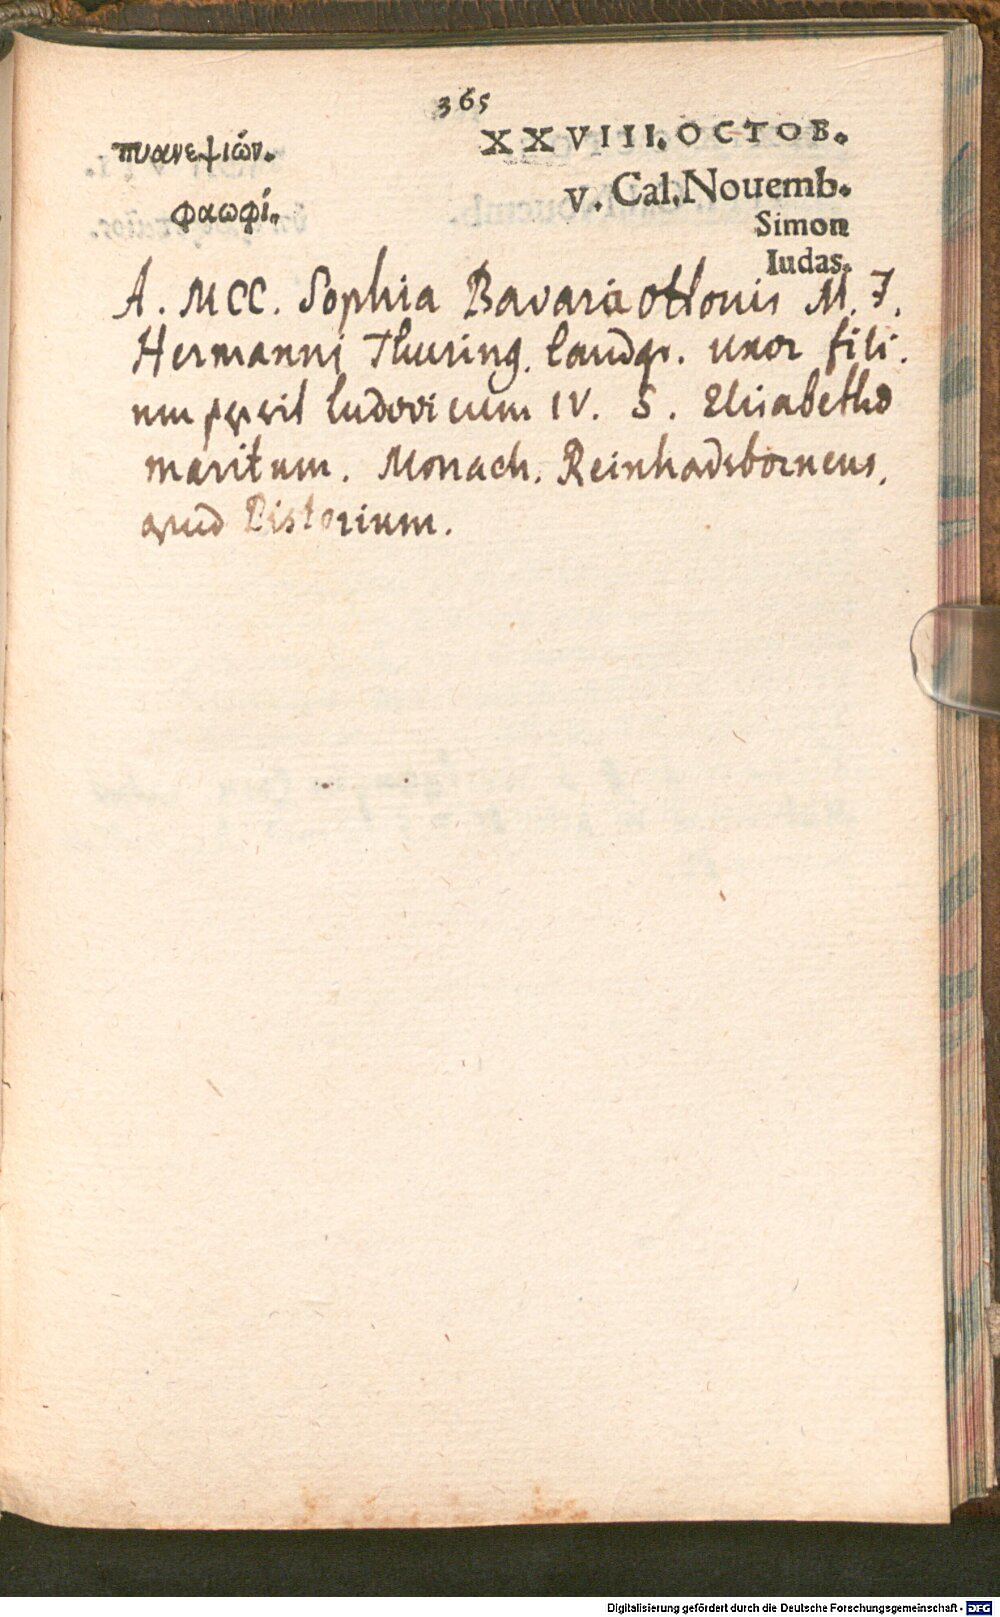 365
πυανεψιών.
XXVIII. OCTOB.
φαωφί.
V. Cal. Nouemb.
Simon
Iudas.
A. MCC. Sophia Bavaria Ottonis M. F.
Hermanni Thuring. landgr. uxor fili
um peperit ludovicum IV. S. Elisabethæ
maritum. Monach. Reinhadsborneus.
apud Pistorium.
Digitalisierung gefördert durch die Deutsche Forschungsgemeinschaft - DFG